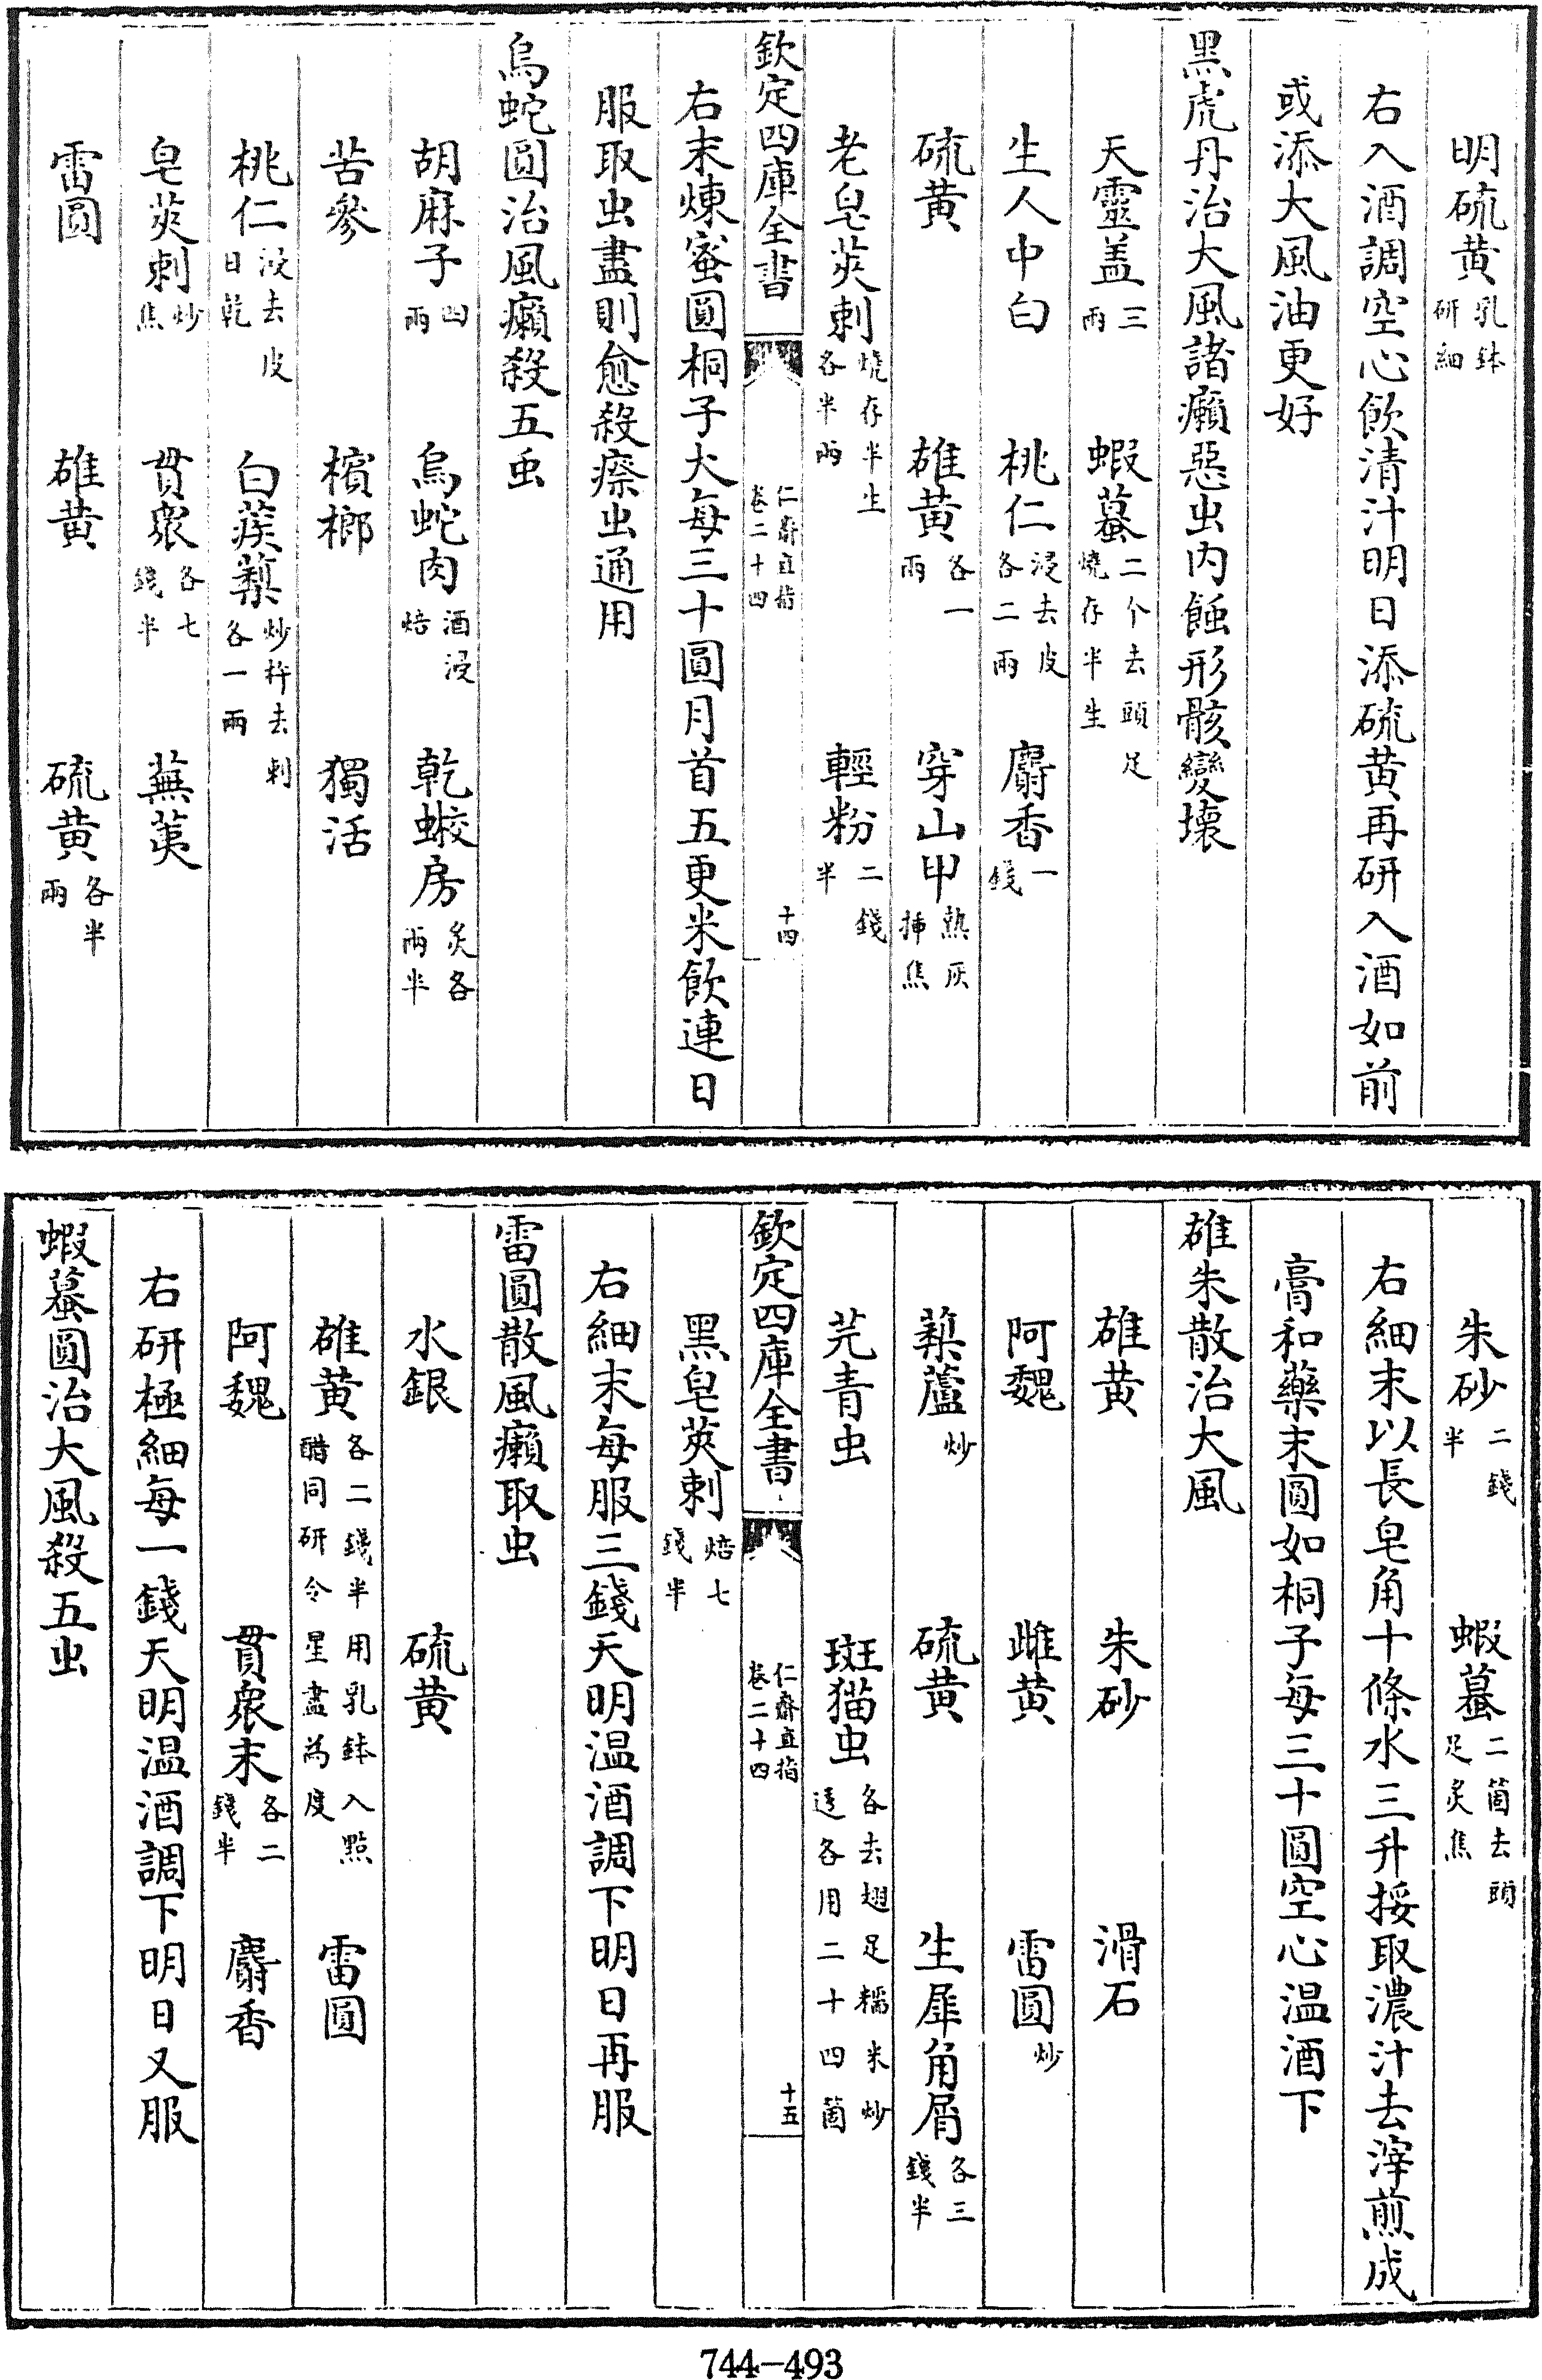 明硫黄乳鉢研細
右入酒調空心飲清汁明日添硫黄再研入酒如前
或添大風油更好
黑虎丹治大風諸癩惡虫内蝕形骸變壞
天靈盖三兩 蝦蟇二个去頭足燒存半生
生人中白 桃仁浸去皮各二兩 麝香一錢
硫黄 雄黄各一兩 穿山甲熱灰揷焦
老皂莢刺燒存半生各半兩 輕粉二錢半
欽定四庫全書 仁齋直指卷二十四 十四
右末煉蜜圓桐子大每三十圓月首五更米飲連日
服取虫盡則愈殺瘵虫通用
烏蛇圓治風癩殺五虫
胡麻子四兩 烏蛇肉酒浸焙 乾蠍房炙各兩半
苦參 檳榔 獨活
桃仁浸去皮日乾 白蒺蔾炒杵去刺各一兩
皂莢刺炒焦 貫衆各七錢半 蕪荑
雷圓 雄黄 硫黄各半兩
朱砂二錢半 蝦蟇二箇去頭足炙焦
右細末以長皂角十條水三升挼取濃汁去滓煎成
膏和藥末圓如桐子每三十圓空心温酒下
雄朱散治大風
雄黄 朱砂 滑石
阿魏 雌黄 雷圓炒
藜蘆炒 硫黄 生犀角屑各三錢半
芫青虫 斑猫虫各去翅足糯米炒透各用二十四箇
欽定四庫全書 仁齋直指卷二十四 十五
黑皂莢刺焙七錢半
右細末每服三錢天明温酒調下明日再服
雷圓散風癩取虫
水銀 硫黄
雄黄各二錢半用乳鉢入點醋同研令星盡為度 雷圓
阿魏 貫衆末各二錢半 麝香
右研極細每一錢天明温酒調下明日又服
蝦蟇圓治大風殺五虫
744-493